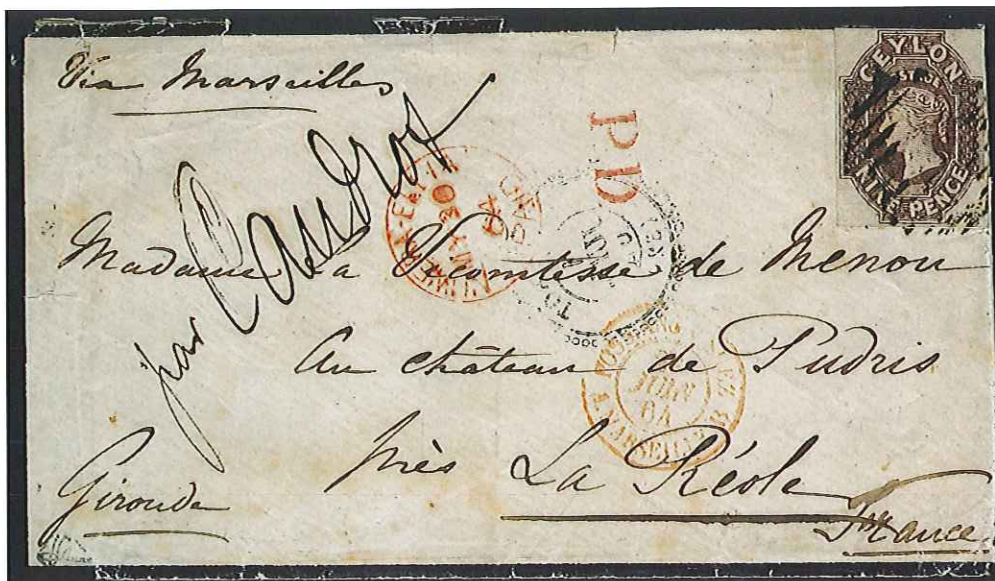 Via Marseilles
CEYLON
POSTAGE
NINE PENCE
PD
par Caudrot
Madame la Vicomtesse de Menou
Au château de Pudris
près La Réole
Gironde
France
MY 30
64
PAID
JUIN
64
MARSEILLE